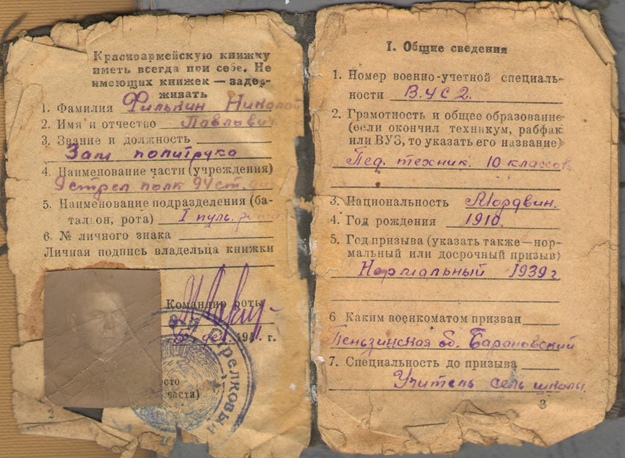 Красноармейскую книжку
иметь всегда при себе. Не
имеющих книжек — задер-
живать
1. Фамилия Филькин Николай
2. Имя и отчество Павлович
3. Звание и должность
Зам политрука
4. Наименование части (учреждения)
стрел полк 94 ст.
5. Наименование подразделения (ба-
тальон, рота) 1 пуль. рота
6. № личного знака
Личная подпись владельца книжки
Командир роты
г.
Стрелковый
части)
2
I. Общие сведения
1. Номер военно-учетной специаль-
ности ВУС 2.
2. Грамотность и общее образование
(если окончил техникум, рабфак
или ВУЗ, то указать его название)
Пед. техник. 10 классов
3. Национальность Мордвин.
4. Год рождения 1910.
5. Год призыва (указать также — нор-
мальный или досрочный призыв)
Нормальный 1939 г
6 Каким военкоматом призван
Пензинская об. Барановский
7. Специальность до призыва
Учитель сель школы
3